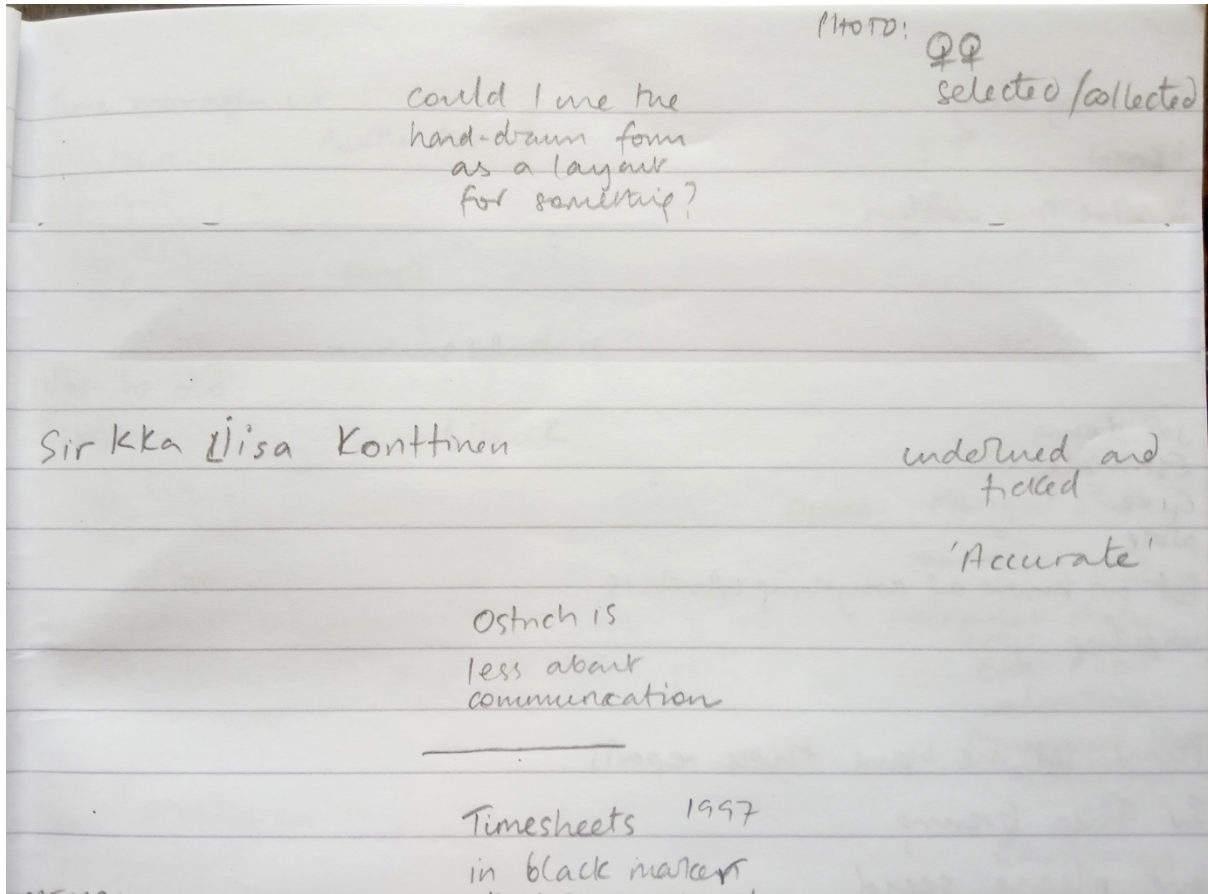 PHOTO: ♀♀
selected/collected
could I use the
hand-drawn form
as a layout
for something?
Sirkka Liisa Konttinen
underlined and
ticked
'Accurate'
Ostrich is
less about
communication
Timesheets 1997
in black marker